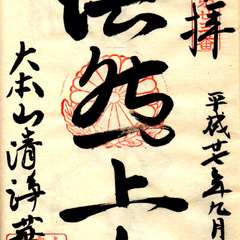 拝
平成廿七年九月
法然上
大本山清浄華